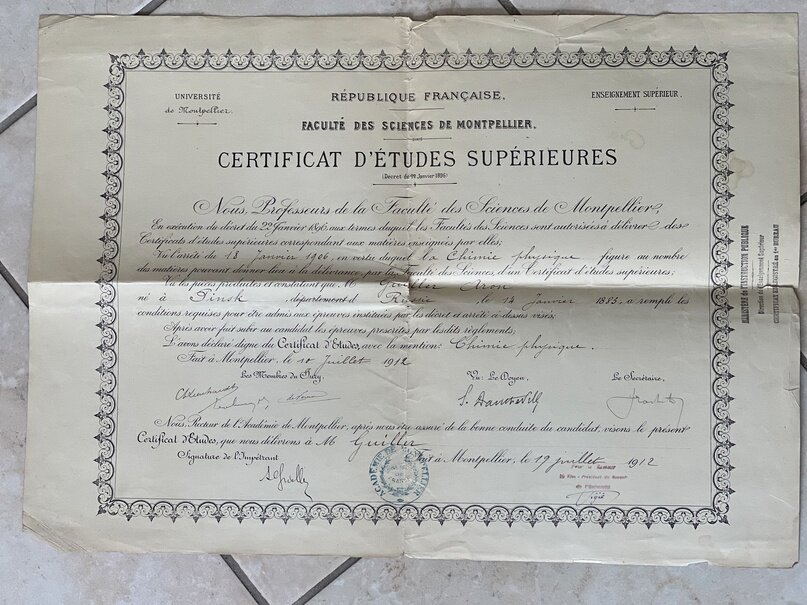 UNIVERSITÉ
de Montpellier.
RÉPUBLIQUE FRANÇAISE.
ENSEIGNEMENT SUPÉRIEUR.
FACULTÉ DES SCIENCES DE MONTPELLIER.
CERTIFICAT D'ÉTUDES SUPÉRIEURES
(Décret du 22 Janvier 1896)
Nous, Professeurs de la Faculté des Sciences de Montpellier,
En exécution du décret du 22 Janvier 1896, aux termes duquel les Facultés des Sciences sont autorisées à délivrer des
Certificats d'études supérieures correspondant aux matières enseignées par elles;
Vu l'arrêté du 13 Janvier 1906, en vertu duquel la Chimie physique figure au nombre
des matières pouvant donner lieu à la délivrance, par les Faculté des Sciences, d'un Certificat d'études supérieures;
Vu les pièces produites et constatant que M Guiller Aron
né à Pinsk, département d Russie, le 14 Janvier 1885, a rempli les
conditions requises pour être admis aux épreuves instituées par les décret et arrêté ci-dessus visés;
Après avoir fait subir au candidat les épreuves prescrites par les dits règlements;
L'avons déclaré digne du Certificat d'Études, avec la mention: Chimie physique.
Fait à Montpellier, le 10 Juillet 1912
Les Membres du Jury,
Vu: Le Doyen,
Le Secrétaire,
Nous, Recteur de l'Académie de Montpellier, après nous être assuré de la bonne conduite du candidat, visons le présent
Certificat d'Études, que nous délivrons à M Guiller
Signature de l'Impétrant
Fait à Montpellier, le 19 juillet 1912
ACADÉMIE DE MONTPELLIER
Pour le Recteur
Le Vice-Président du Conseil
de l'Université
MINISTÈRE DE L'INSTRUCTION PUBLIQUE
Direction de l'Enseignement Supérieur
CERTIFICAT ENREGISTRÉ au 1er BUREAU